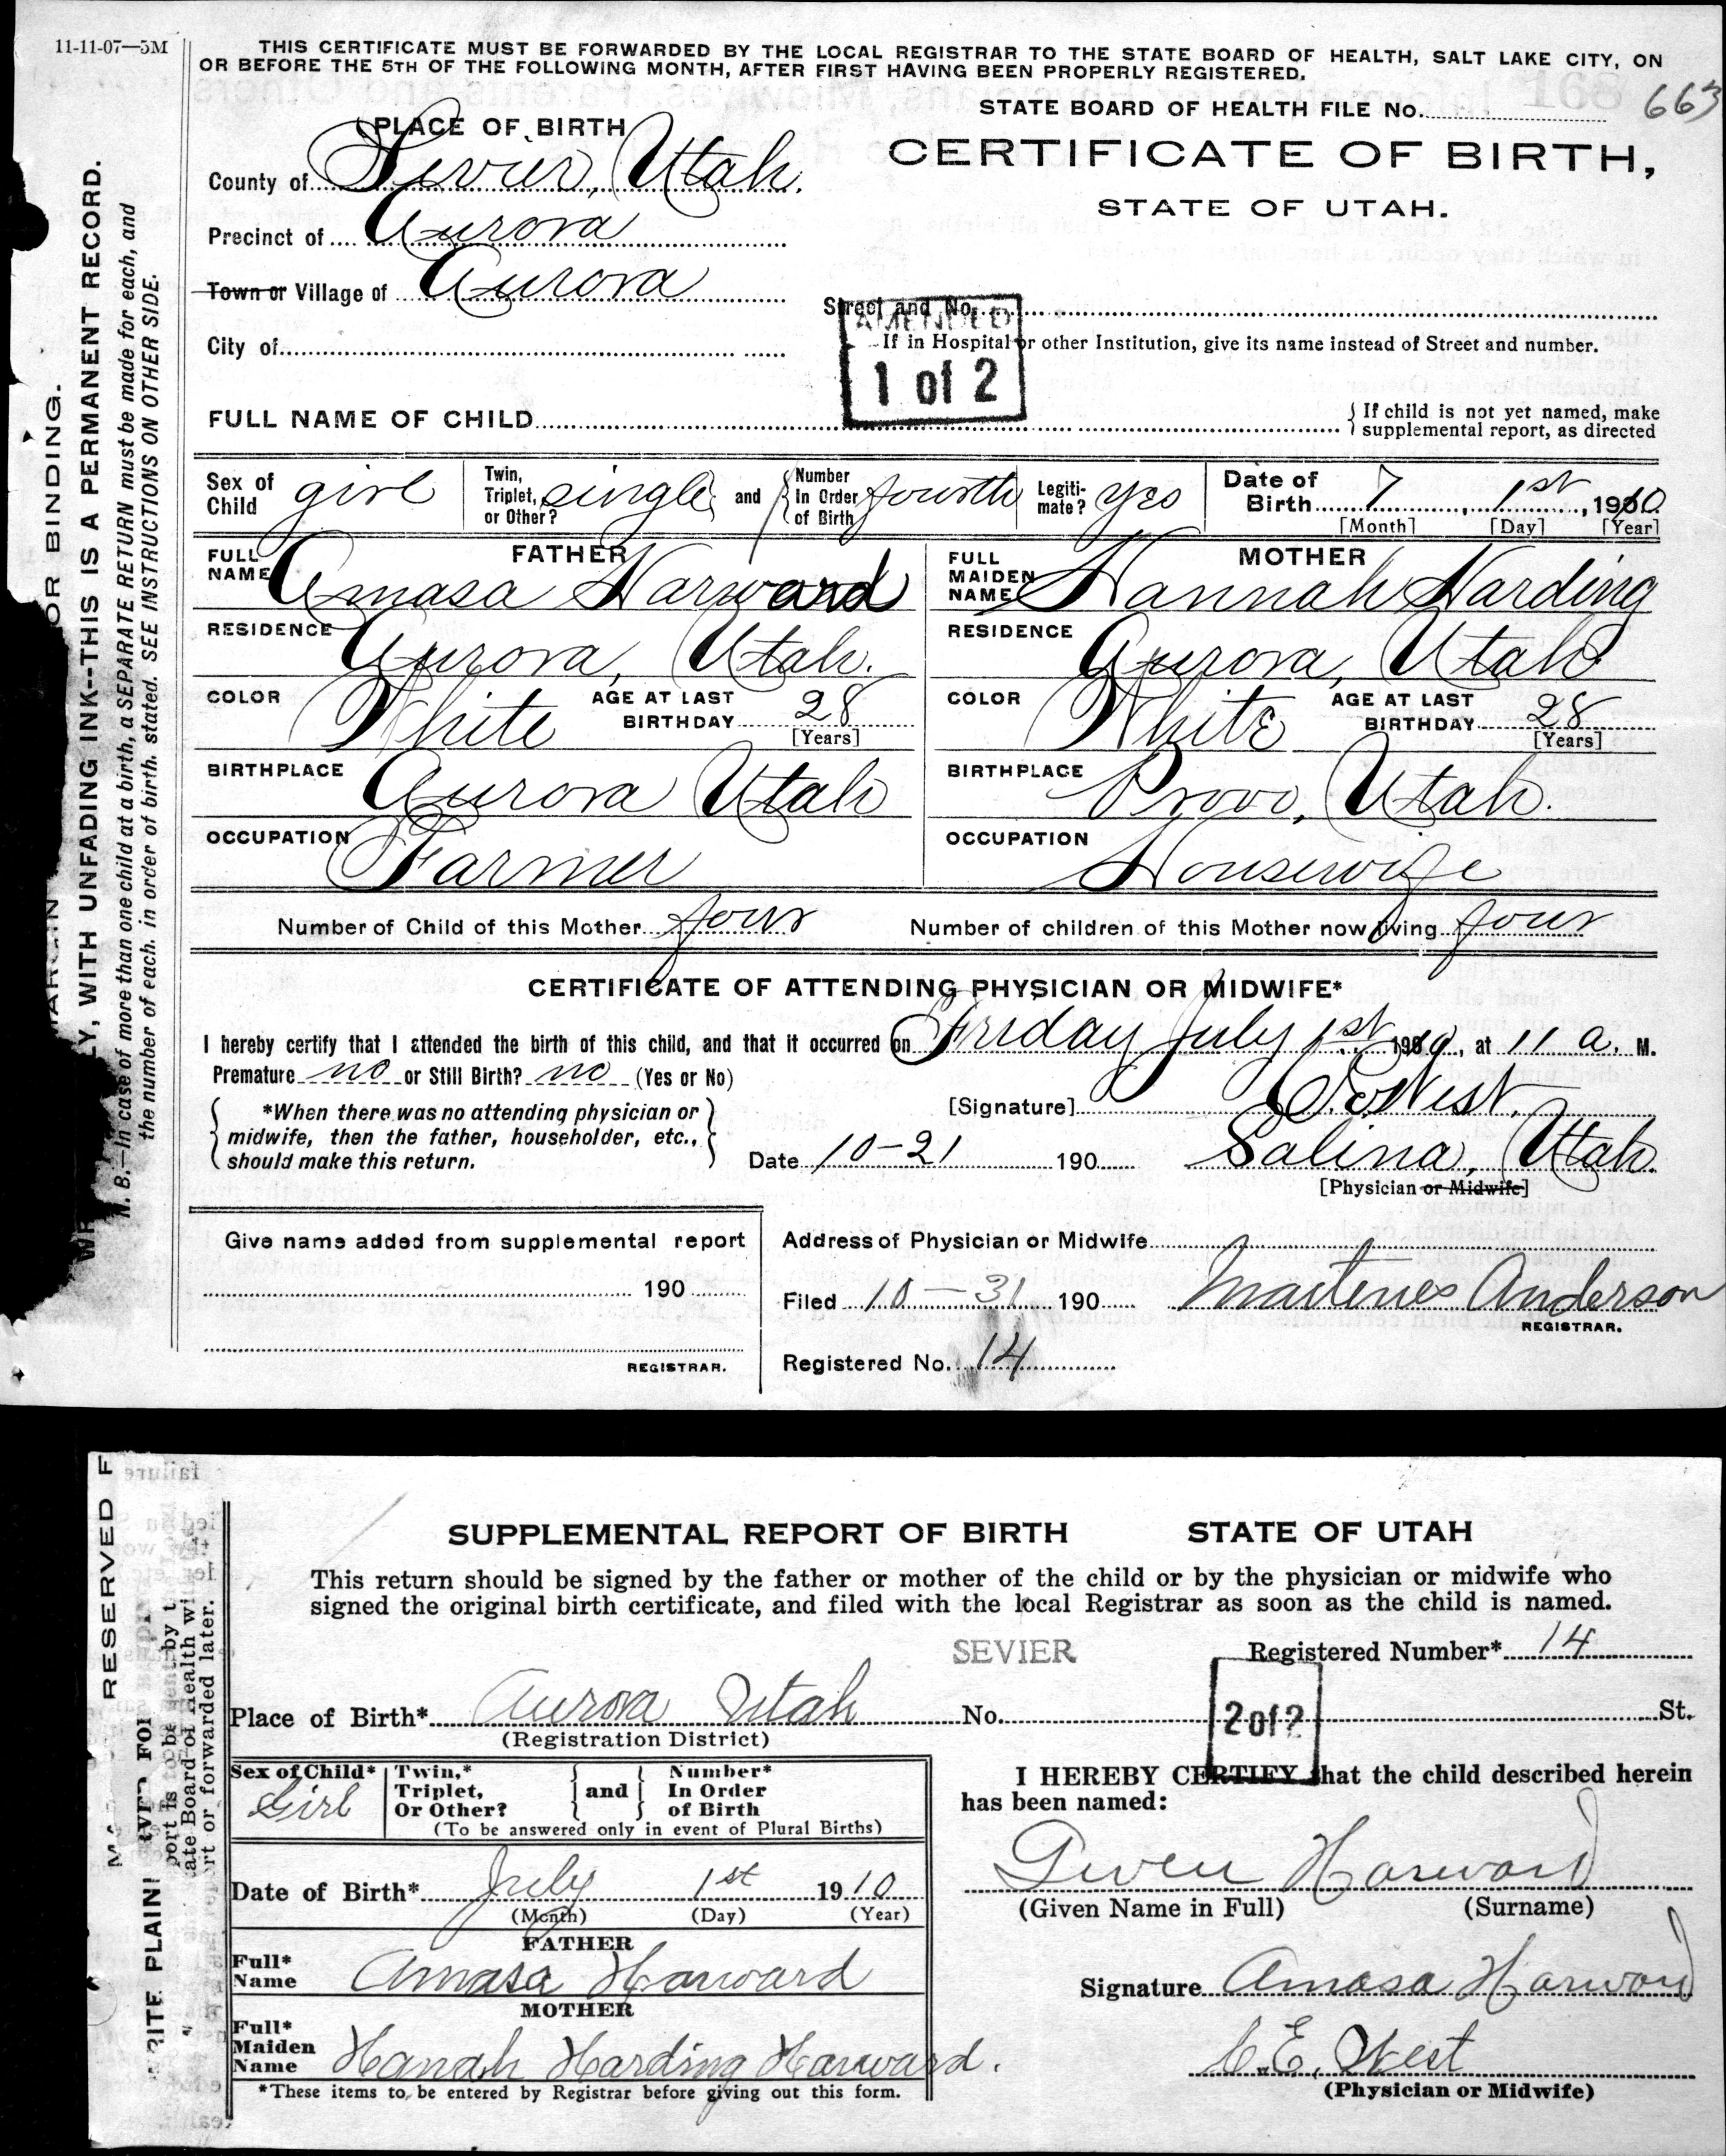 11-11-07—5M
THIS CERTIFICATE MUST BE FORWARDED BY THE LOCAL REGISTRAR TO THE STATE BOARD OF HEALTH, SALT LAKE CITY, ON
OR BEFORE THE 5TH OF THE FOLLOWING MONTH, AFTER FIRST HAVING BEEN PROPERLY REGISTERED.
STATE BOARD OF HEALTH FILE No. 168 663
PLACE OF BIRTH
CERTIFICATE OF BIRTH,
STATE OF UTAH.
County of Sevier, Utah.
Precinct of Aurora
Town or Village of Aurora
Street and No.
AMENDED
1 of 2
If in Hospital or other Institution, give its name instead of Street and number.
City of
FULL NAME OF CHILD
If child is not yet named, make
supplemental report, as directed
Sex of Child girl
Twin, Triplet, or Other? single and Number in Order of Birth fourth
Legitimate? yes
Date of Birth 7, 1st, 1910
[Month] [Day] [Year]
FATHER
FULL NAME Amasa Harward
RESIDENCE Aurora, Utah.
COLOR White AGE AT LAST BIRTHDAY 28
[Years]
BIRTHPLACE Aurora Utah
OCCUPATION Farmer
MOTHER
FULL MAIDEN NAME Hannah Harding
RESIDENCE Aurora, Utah
COLOR White AGE AT LAST BIRTHDAY 28
[Years]
BIRTHPLACE Provo, Utah.
OCCUPATION Housewife
Number of Child of this Mother four Number of children of this Mother now living four
CERTIFICATE OF ATTENDING PHYSICIAN OR MIDWIFE*
I hereby certify that I attended the birth of this child, and that it occurred on Friday July 1st 1910, at 11 a. M.
Premature no or Still Birth? no (Yes or No)
*When there was no attending physician or
midwife, then the father, householder, etc.,
should make this return.
[Signature] C. E. West.
Date 10-21 190 Salina, Utah.
[Physician or Midwife]
Give name added from supplemental report
190
REGISTRAR.
Address of Physician or Midwife
Filed 10-31 190 Martenes Anderson
REGISTRAR.
Registered No. 14
OR BINDING.
LY, WITH UNFADING INK--THIS IS A PERMANENT RECORD.
N. B.—In case of more than one child at a birth, a SEPARATE RETURN must be made for each, and
the number of each. in order of birth. stated. SEE INSTRUCTIONS ON OTHER SIDE.
SUPPLEMENTAL REPORT OF BIRTH STATE OF UTAH
This return should be signed by the father or mother of the child or by the physician or midwife who
signed the original birth certificate, and filed with the local Registrar as soon as the child is named.
SEVIER
Registered Number* 14
Place of Birth* Aurora Utah No. St.
(Registration District)
2 of 2
Sex of Child* Girl
Twin,* Triplet, Or Other? and Number* In Order of Birth
(To be answered only in event of Plural Births)
Date of Birth* July 1st 1910
(Month) (Day) (Year)
FATHER
Full* Name Amasa Harward
MOTHER
Full* Maiden Name Hanah Harding Harward.
*These items to be entered by Registrar before giving out this form.
I HEREBY CERTIFY that the child described herein
has been named:
Gwen Harward
(Given Name in Full) (Surname)
Signature Amasa Harward
C. E. West
(Physician or Midwife)
RESERVED F